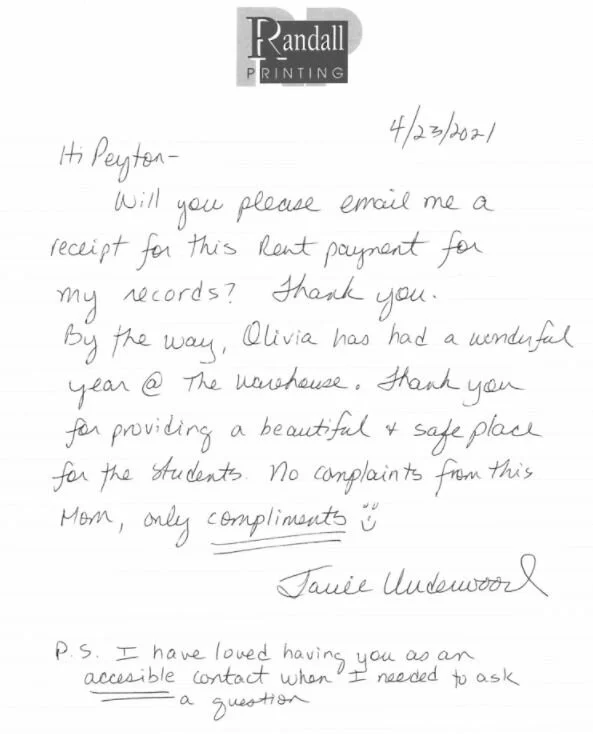 Randall
PRINTING
4/23/2021
Hi Peyton-
Will you please email me a
receipt for this Rent payment for
my records? Thank you.
By the way, Olivia has had a wonderful
year @ The Warehouse. Thank you
for providing a beautiful & safe place
for the students. No complaints from this
Mom, only compliments
Janie Underwood
P.S. I have loved having you as an
accesible contact when I needed to ask
a question